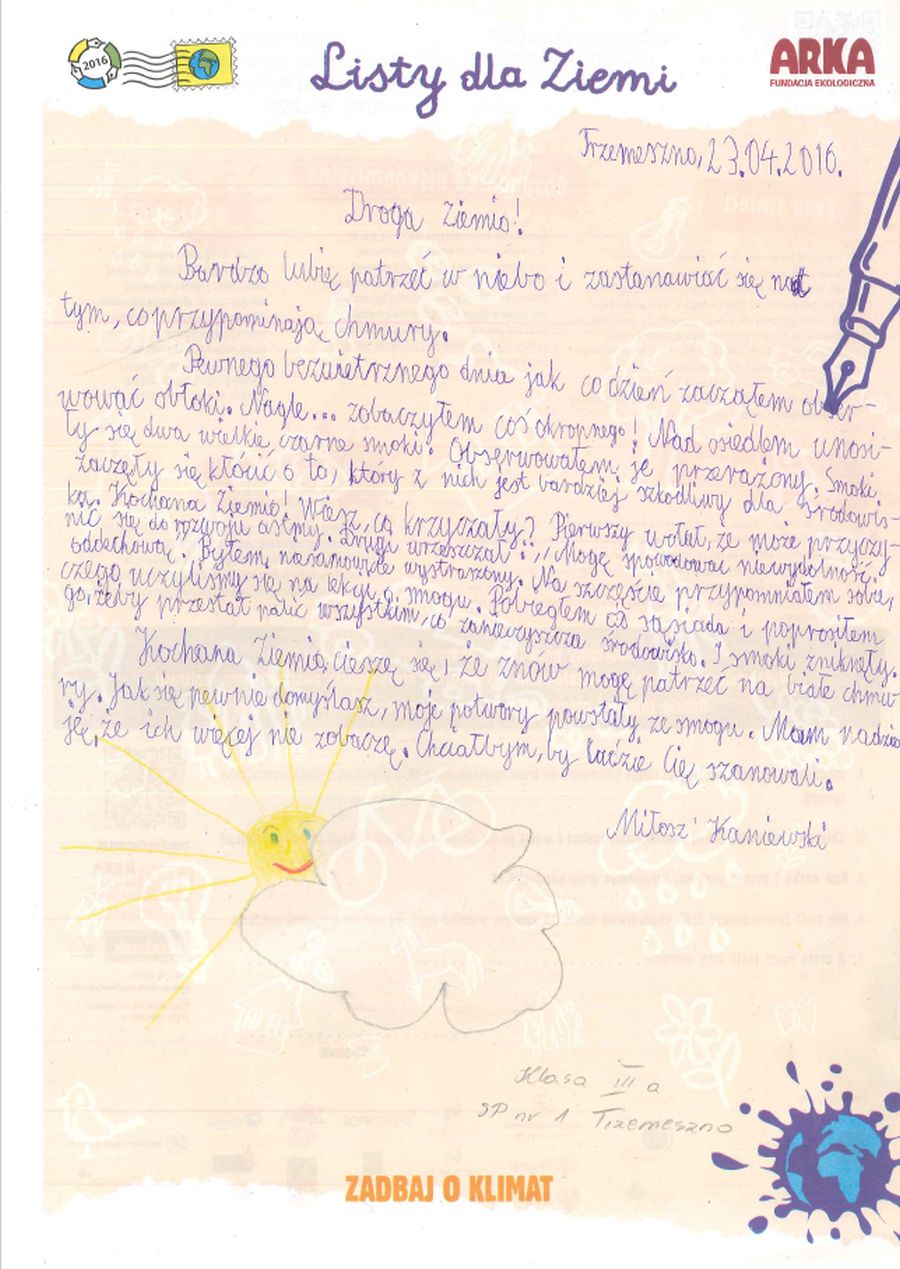 2016
Listy dla Ziemi
ARKA
FUNDACJA EKOLOGICZNA
Trzemeszno, 23.04.2016.
Droga Ziemio!
Bardzo lubię patrzeć w niebo i zastanawiać się nad
tym, co przypominają chmury.
Pewnego bezwietrznego dnia jak co dzień zacząłem obser-
wować obłoki. Nagle... zobaczyłem coś okropnego! Nad osiedlem unosi-
ły się dwa wielkie, czarne smoki. Obserwowałem je przerażony. Smoki
zaczęły się kłócić o to, który z nich jest bardziej szkodliwy dla środowis-
ka. Kochana Ziemio! Wiesz, co krzyczały? Pierwszy wołał, że może przyczy-
nić się do rozwoju astmy. Drugi wrzeszczał: „Mogę spowodować niewydolność
oddechową". Byłem niesamowicie wystraszony. Na szczęście przypomniałem sobie,
czego uczyliśmy się na lekcji o smogu. Pobiegłem do sąsiada i poprosiłem
go, żeby przestał palić wszystkim, co zanieczyszcza środowisko. I smoki zniknęły.
Kochana Ziemio, cieszę się, że znów mogę patrzeć na białe chmu-
ry. Jak się pewnie domyślasz, moje potwory powstały ze smogu. Mam nadzie-
ję, że ich więcej nie zobaczę. Chciałbym, by ludzie Cię szanowali.
Miłosz Kaniewski
Klasa III a
SP nr 1 Trzemeszno
ZADBAJ O KLIMAT